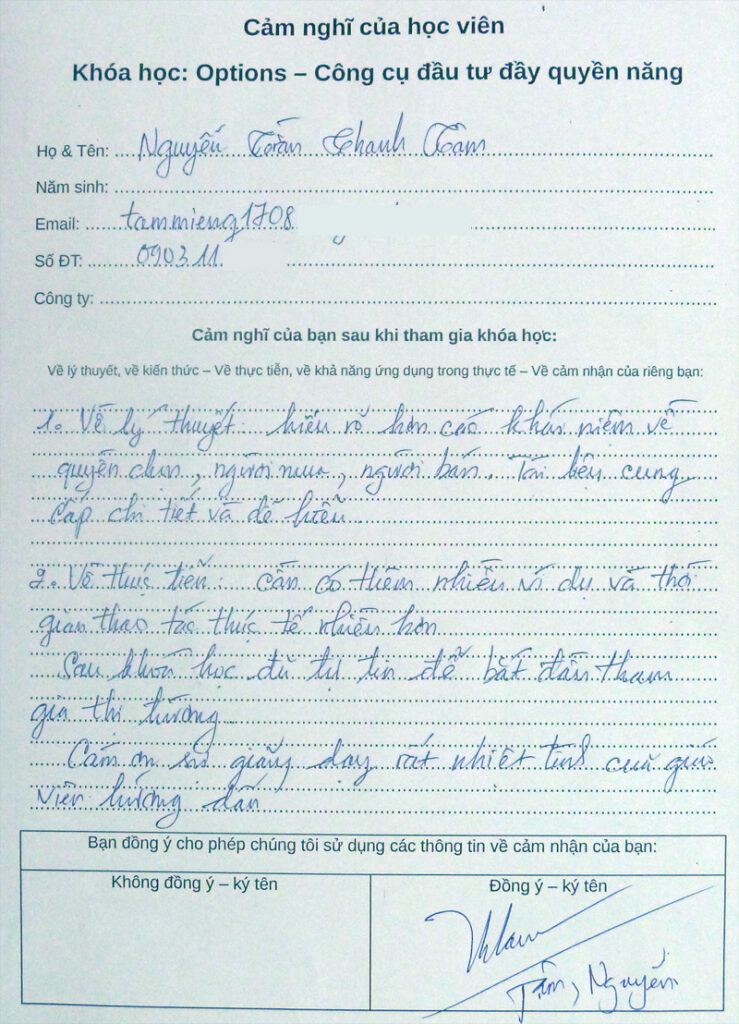 Cảm nghĩ của học viên
Khóa học: Options – Công cụ đầu tư đầy quyền năng
Họ & Tên: Nguyễn Trần Thanh Tâm
Năm sinh:
Email: tammieng1708
Số ĐT: 090311
Công ty:
Cảm nghĩ của bạn sau khi tham gia khóa học:
Về lý thuyết, về kiến thức – Về thực tiễn, về khả năng ứng dụng trong thực tế – Về cảm nhận của riêng bạn:
1. Về lý thuyết: hiểu rõ hơn các khái niệm về
quyền chọn, người mua, người bán. Tài liệu cung
cấp chi tiết và dễ hiểu.
2. Về thực tiễn: cần có thêm nhiều ví dụ và thời
gian thao tác thực tế nhiều hơn
Sau khóa học đủ tự tin để bắt đầu tham
gia thị trường
Cám ơn sự giảng dạy rất nhiệt tình của giáo
viên hướng dẫn
Bạn đồng ý cho phép chúng tôi sử dụng các thông tin về cảm nhận của bạn:
Không đồng ý – ký tên
Đồng ý – ký tên
Tâm, Nguyễn